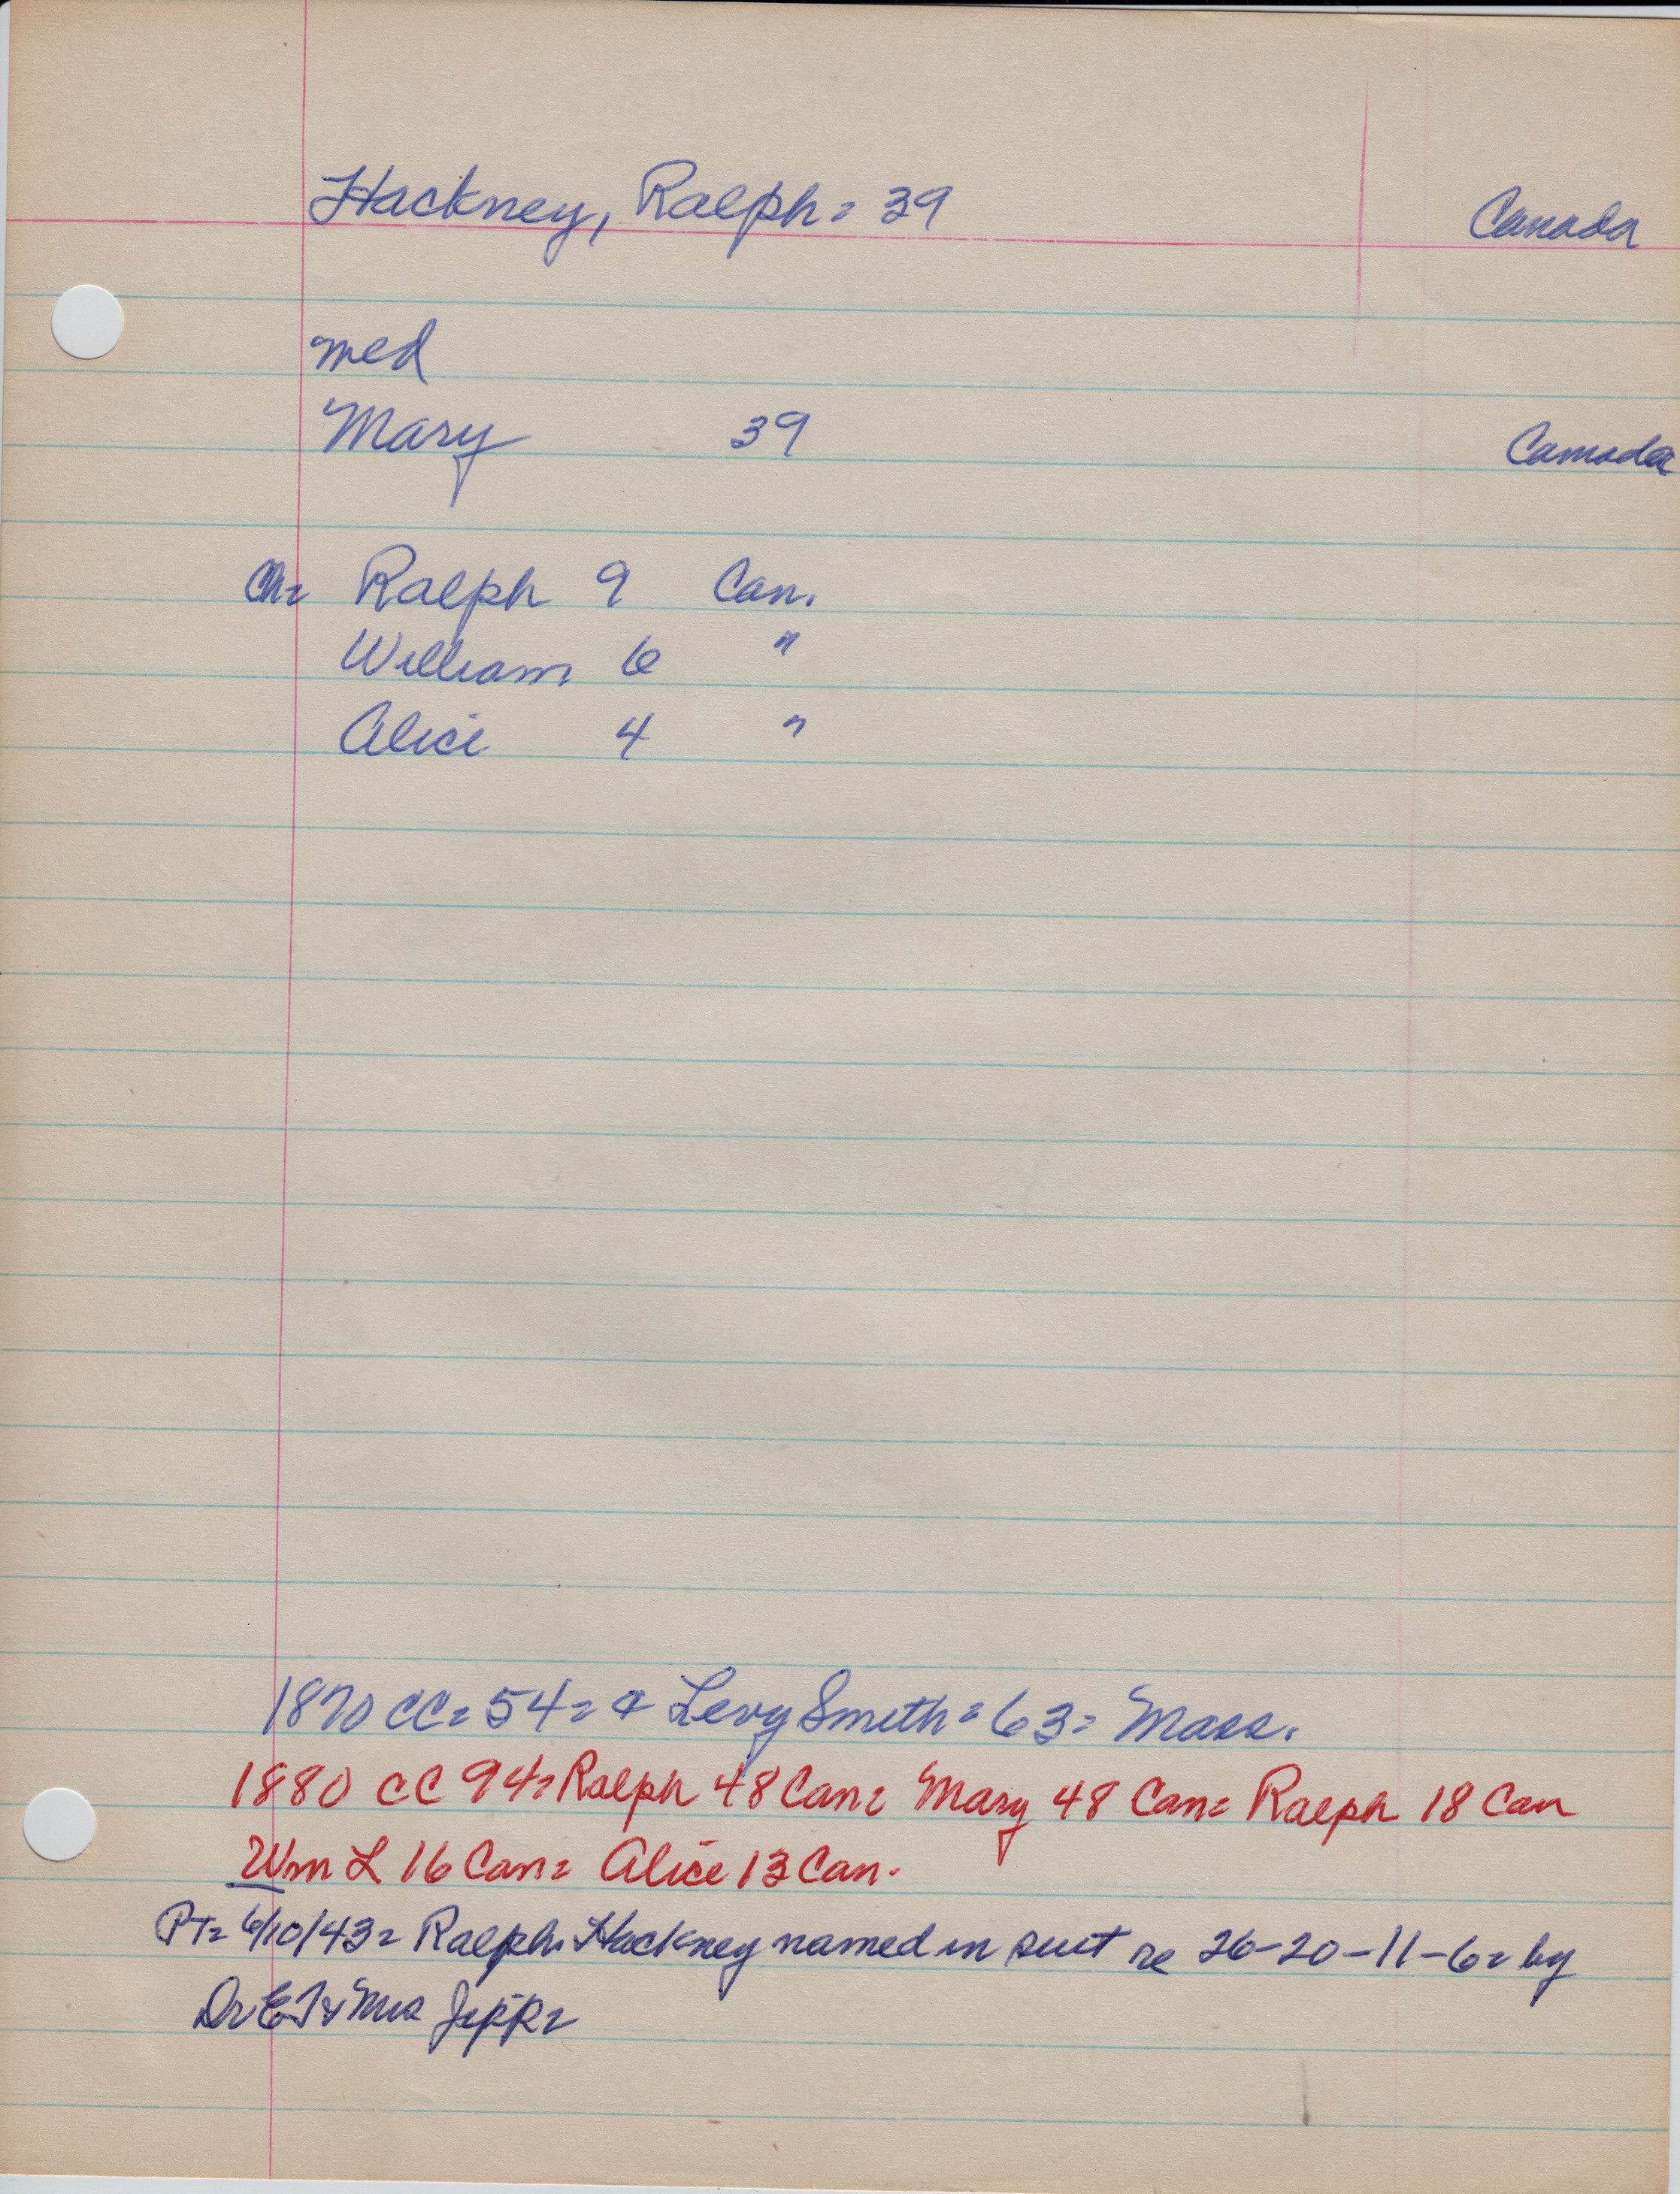 Hackney, Ralph = 39 Canada
med
Mary 39 Canada
Ch= Ralph 9 Can.
William 6 "
Alice 4 "
1870 CC= 54= & Levy Smith = 63= Mass.
1880 CC 94= Ralph 48 Can= Mary 48 Can= Ralph 18 Can
Wm L 16 Can= Alice 13 Can.
PT= 6/10/43= Ralph Hackney named in suit re 26-20-11-6= by
Dr E & Mrs